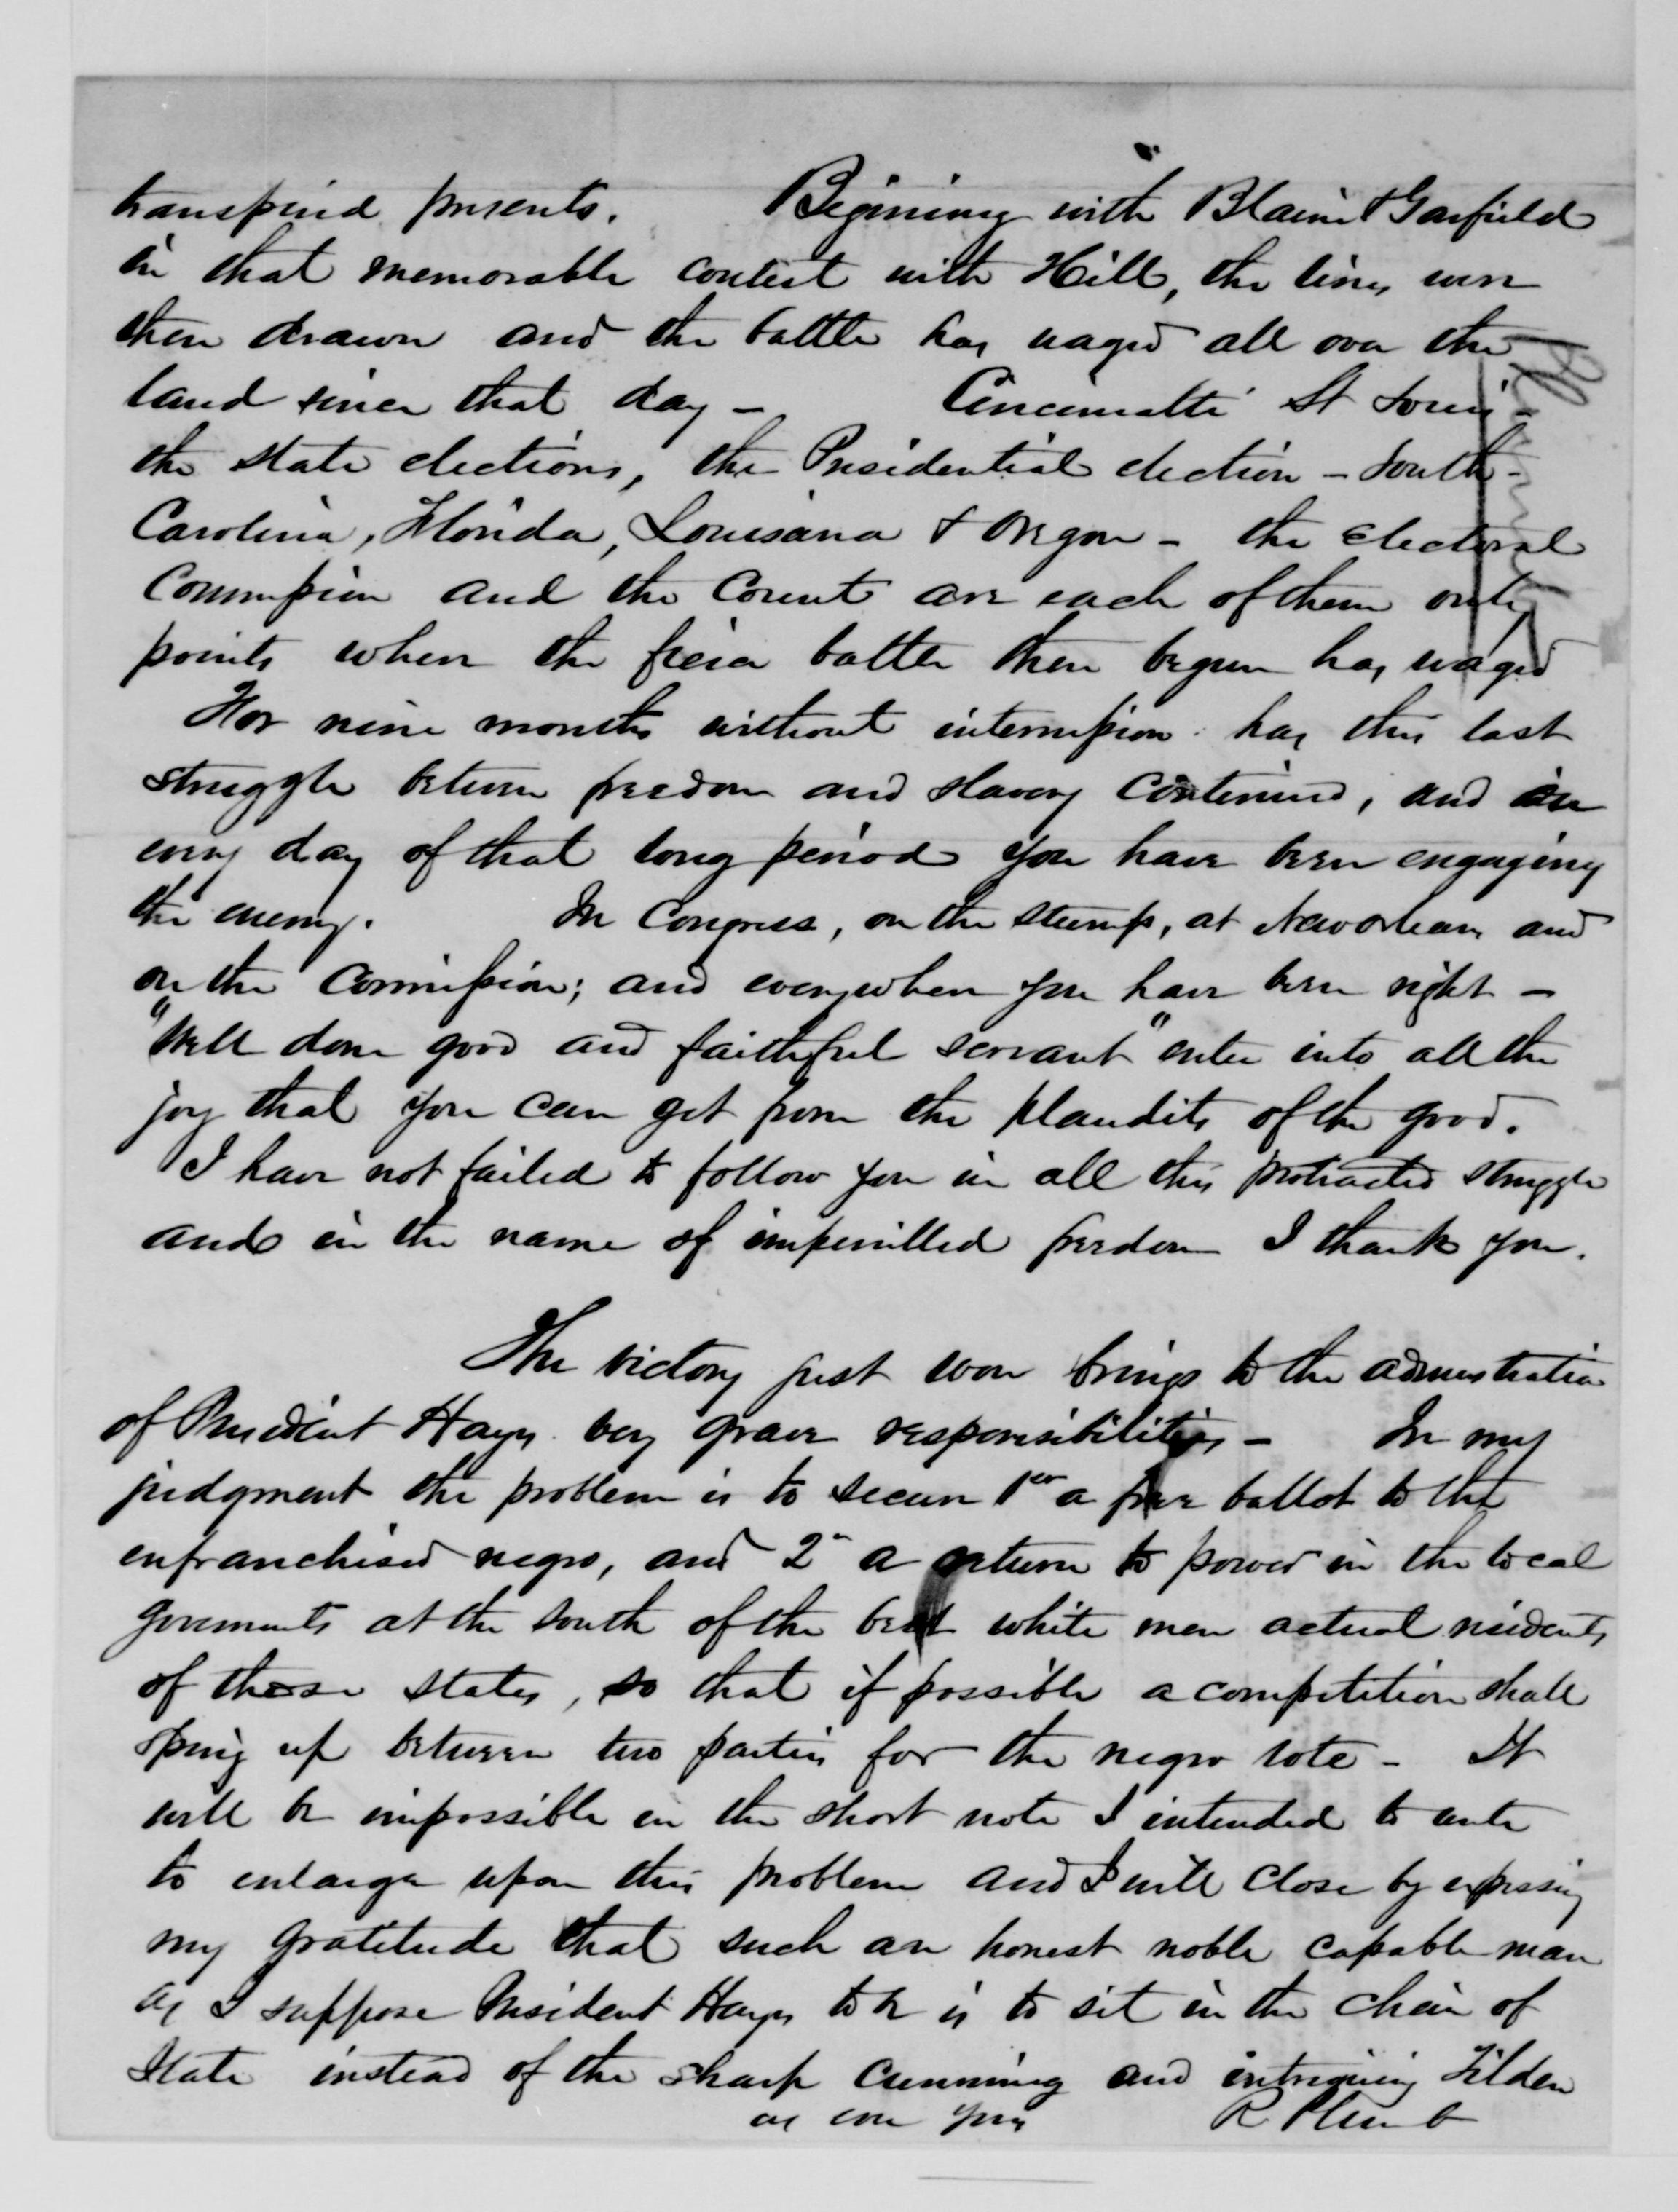 transpired presents. Begining with Blaine & Garfield
in that memorable contest with Hill, the lines were
then drawn and the battle has waged all over the
land since that day - Cincinnatti St Louis -
the state elections, the Presidential election - South -
Carolina, Florida, Louisana & Oregon - the electoral
Commission and the Count are each of them only
points where the fierce battle then begun has waged
For nine months without interruption has this last
struggle between freedom and slavery continued, and on
every day of that long period you have been engaging
the enemy. In Congress, on the stump, at New Orleans and
on the Commission; and everywhere you have been right -
"Well done good and faithful servant" enter into all the
joy that you can get from the plaudits of the good.
I have not failed to follow you in all this protracted struggle
and in the name of imperilled freedom I thank you.
The victory just won brings to the admistration
of President Hayes very grave responsibilities - In my
judgment the problem is to secure 1st a free ballot to the
enfranchised negro, and 2d a return to power in the local
goverments at the south of the best white men actual residents
of those states, so that if possible a competition shall
spring up between two parties for the negro vote - It
will be impossible in the short note I intended to write
to enlarge upon this problem and I will close by expressing
my gratitude that such an honest noble capable man
as I suppose President Hayes to be is to sit in the chair of
State instead of the sharp cunning and intriguing Tilden
as ever yours R Plumb